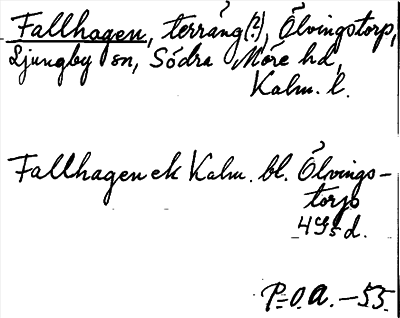 Fallhagen, terräng(?), Ölvingstorp,
Ljungby sn, Södra Möre hd,
Kalm. l.
Fallhagen ek Kalm. bl. Ölvings-
torp
4G5d.
P.O.A. -53.